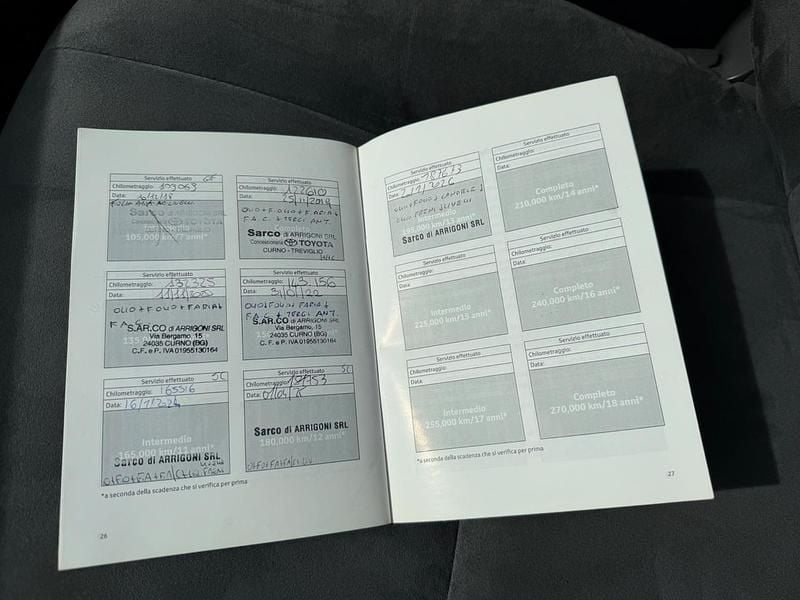 Servizio effettuato
Chilometraggio: 109069
Data:
Sarco
105,000 km/7 anni*
Servizio effettuato
Chilometraggio: 122610
Data: 25/11/2019
OLIO+F.OLIO+F.ARIA+
F.A.C. + TERGI ANT.
Completo
Sarco di ARRIGONI SRL
Concessionaria TOYOTA
CURNO - TREVIGLIO
Servizio effettuato
Chilometraggio: 132325
Data: 11/11/2020
OLIO+FOLIO+FARIA+
F.A.C
S.AR.CO di ARRIGONI SRL
Via Bergamo, 15
24035 CURNO (BG)
C.F. e P. IVA 01955130164
Servizio effettuato
Chilometraggio: 143.156
Data: 31/01/22
OLIO+FOLIO+FARIA+
F.A.C + TERGI ANT.
S.AR.CO di ARRIGONI SRL
Via Bergamo, 15
24035 CURNO (BG)
C.F. e P. IVA 01955130164
Servizio effettuato
SC
Chilometraggio: 165516
Data:
Intermedio
165,000 km/11 anni*
Sarco di ARRIGONI SRL
Servizio effettuato
SC
Chilometraggio:
Data:
Sarco di ARRIGONI SRL
180,000 km/12 anni*
*a seconda della scadenza che si verifica per prima
26
Servizio effettuato
Chilometraggio:
Data:
Intermedio
195,000 km/13 anni*
Sarco di ARRIGONI SRL
Servizio effettuato
Chilometraggio:
Data:
Completo
210,000 km/14 anni*
Servizio effettuato
Chilometraggio:
Data:
Intermedio
225,000 km/15 anni*
Servizio effettuato
Chilometraggio:
Data:
Completo
240,000 km/16 anni*
Servizio effettuato
Chilometraggio:
Data:
Intermedio
255,000 km/17 anni*
Servizio effettuato
Chilometraggio:
Data:
Completo
270,000 km/18 anni*
*a seconda della scadenza che si verifica per prima
27